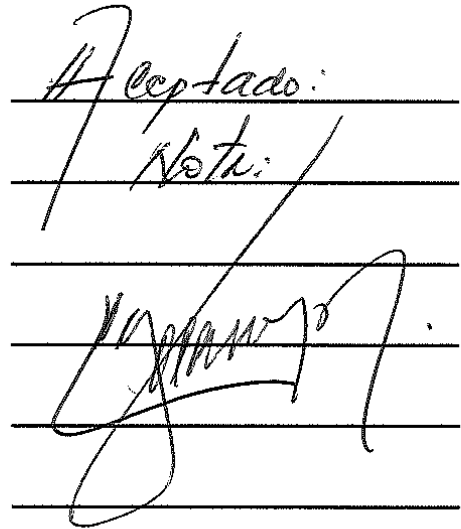 Aceptado:
Nota: